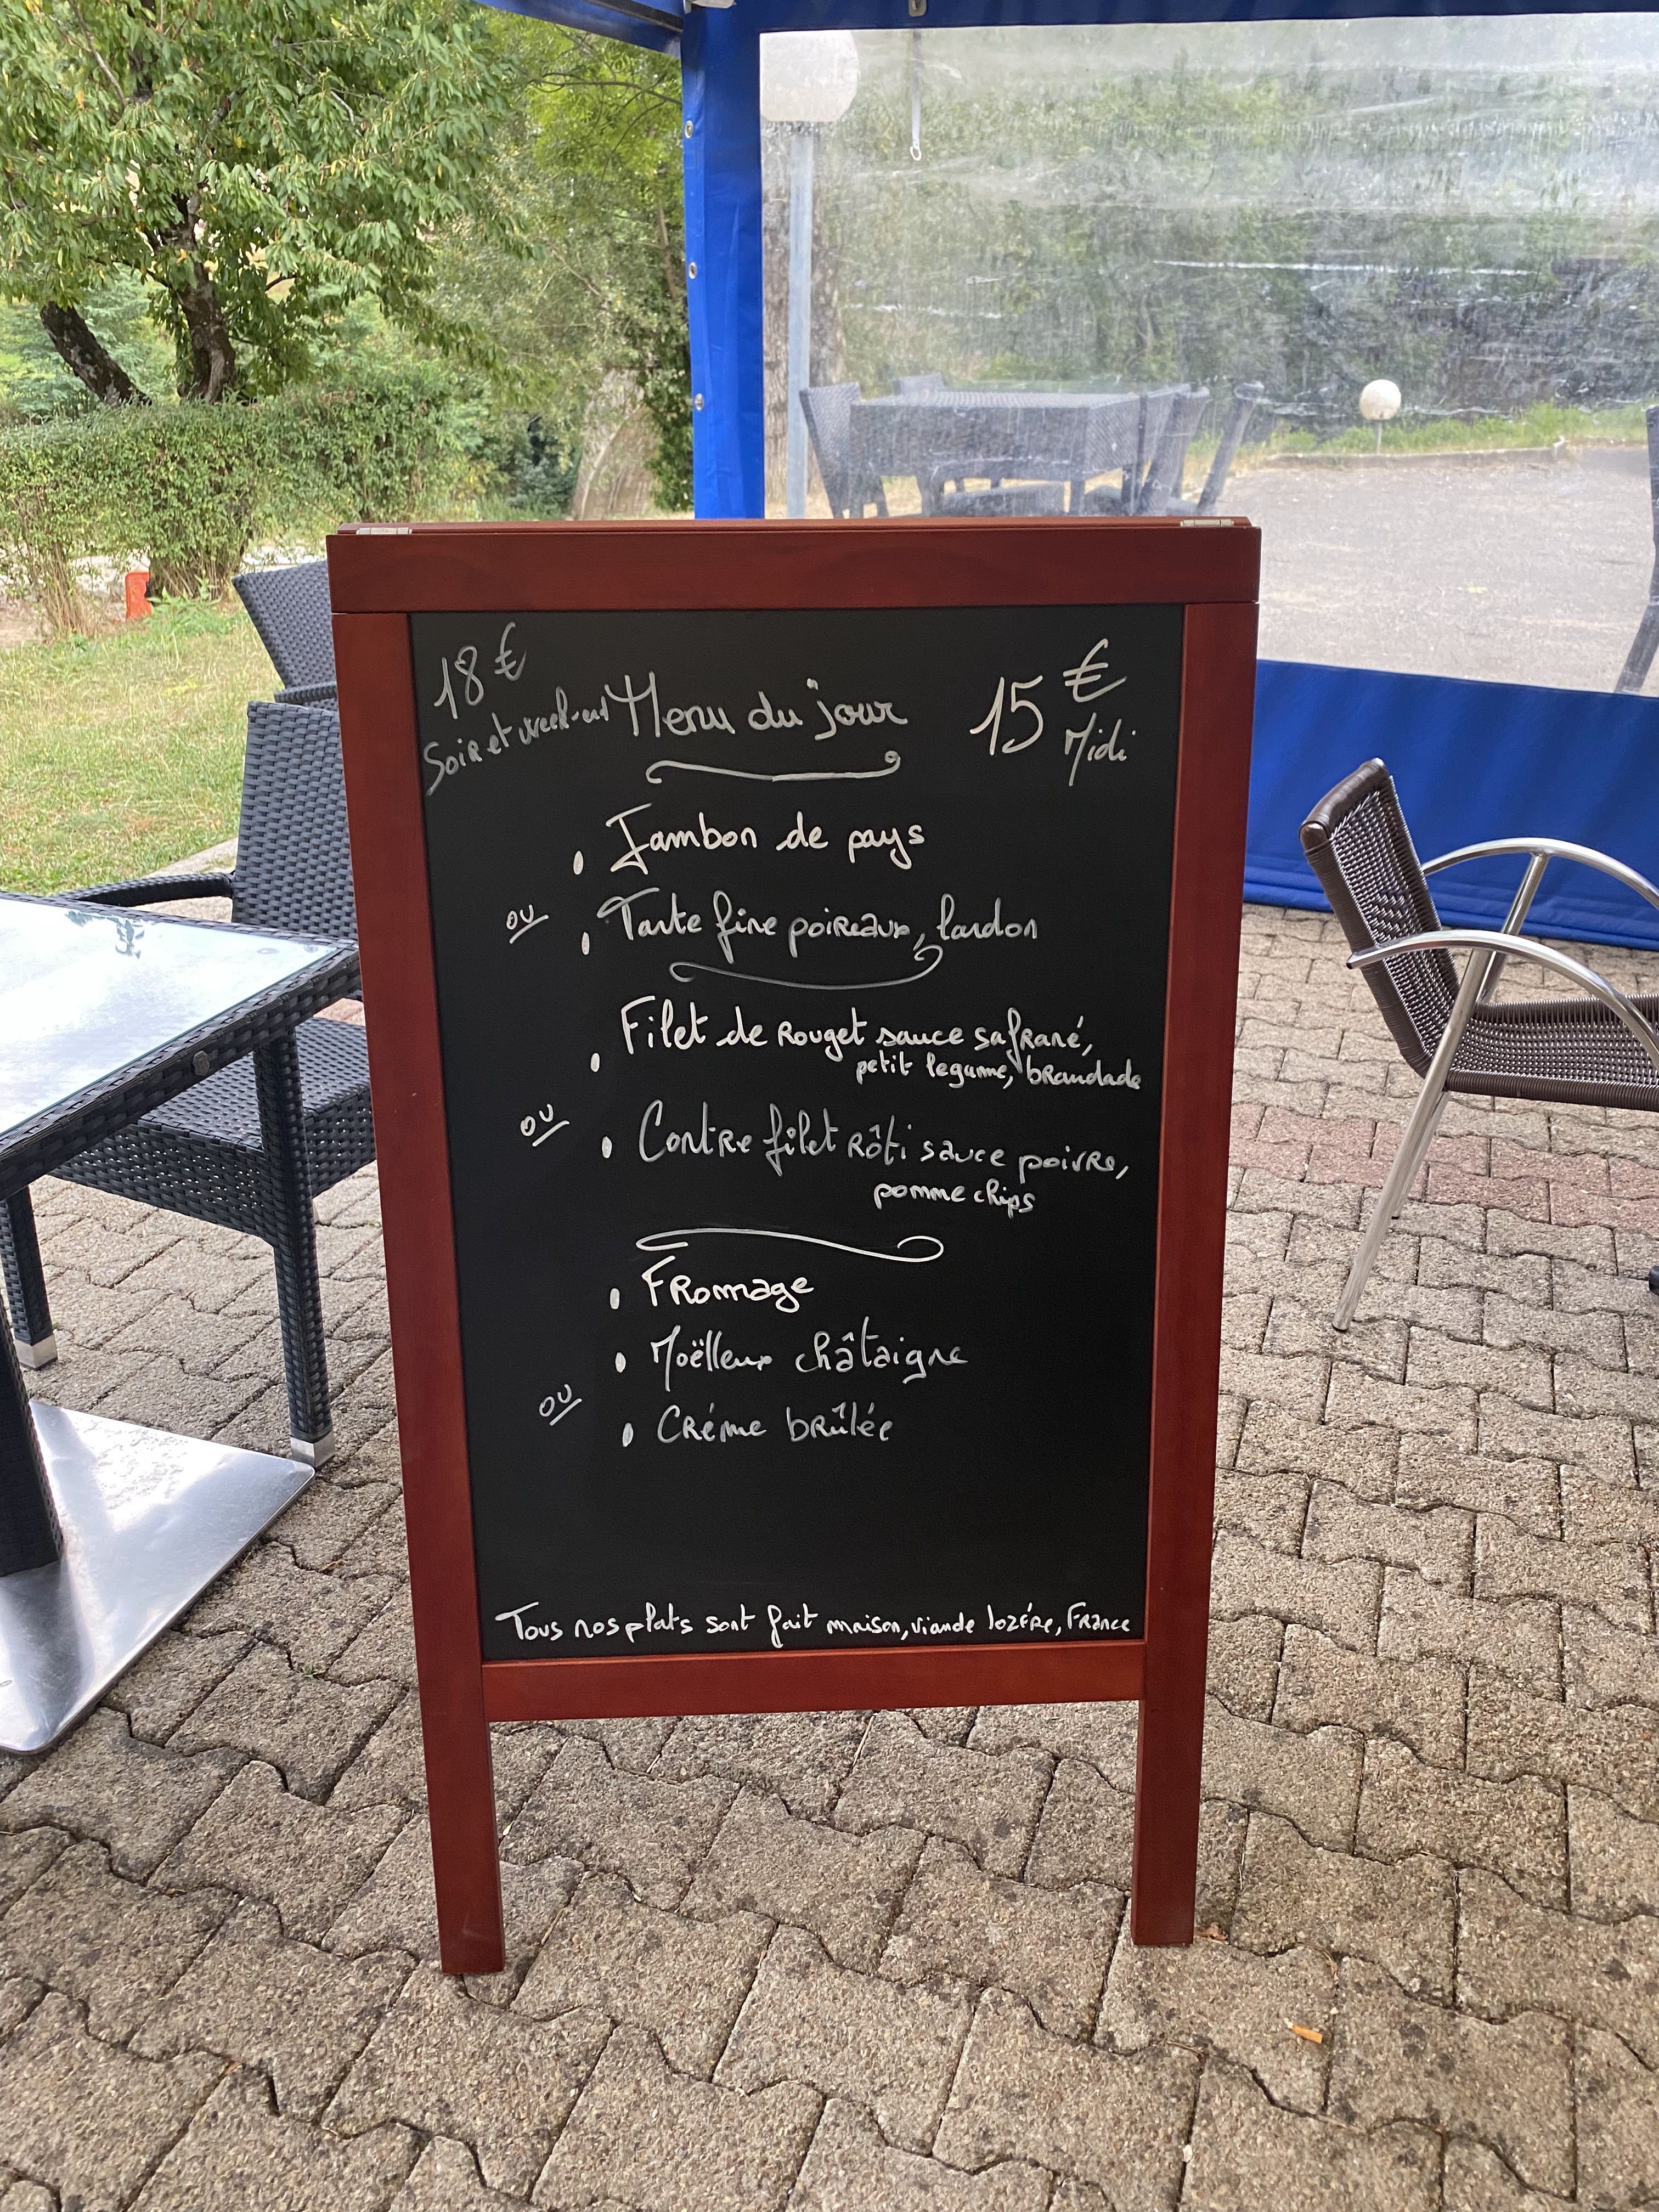 18 €
Soir et week-end
Menu du jour
15 €
Midi
• Jambon de pays
ou
• Tarte fine poireaux, lardon
• Filet de Rouget sauce safrané,
petit legume, brandade
ou
• Contre filet rôti sauce poivre,
pomme chips
• Fromage
• Moëlleux châtaigne
ou
• Créme brûlée
Tous nos plats sont fait maison, viande lozére, France